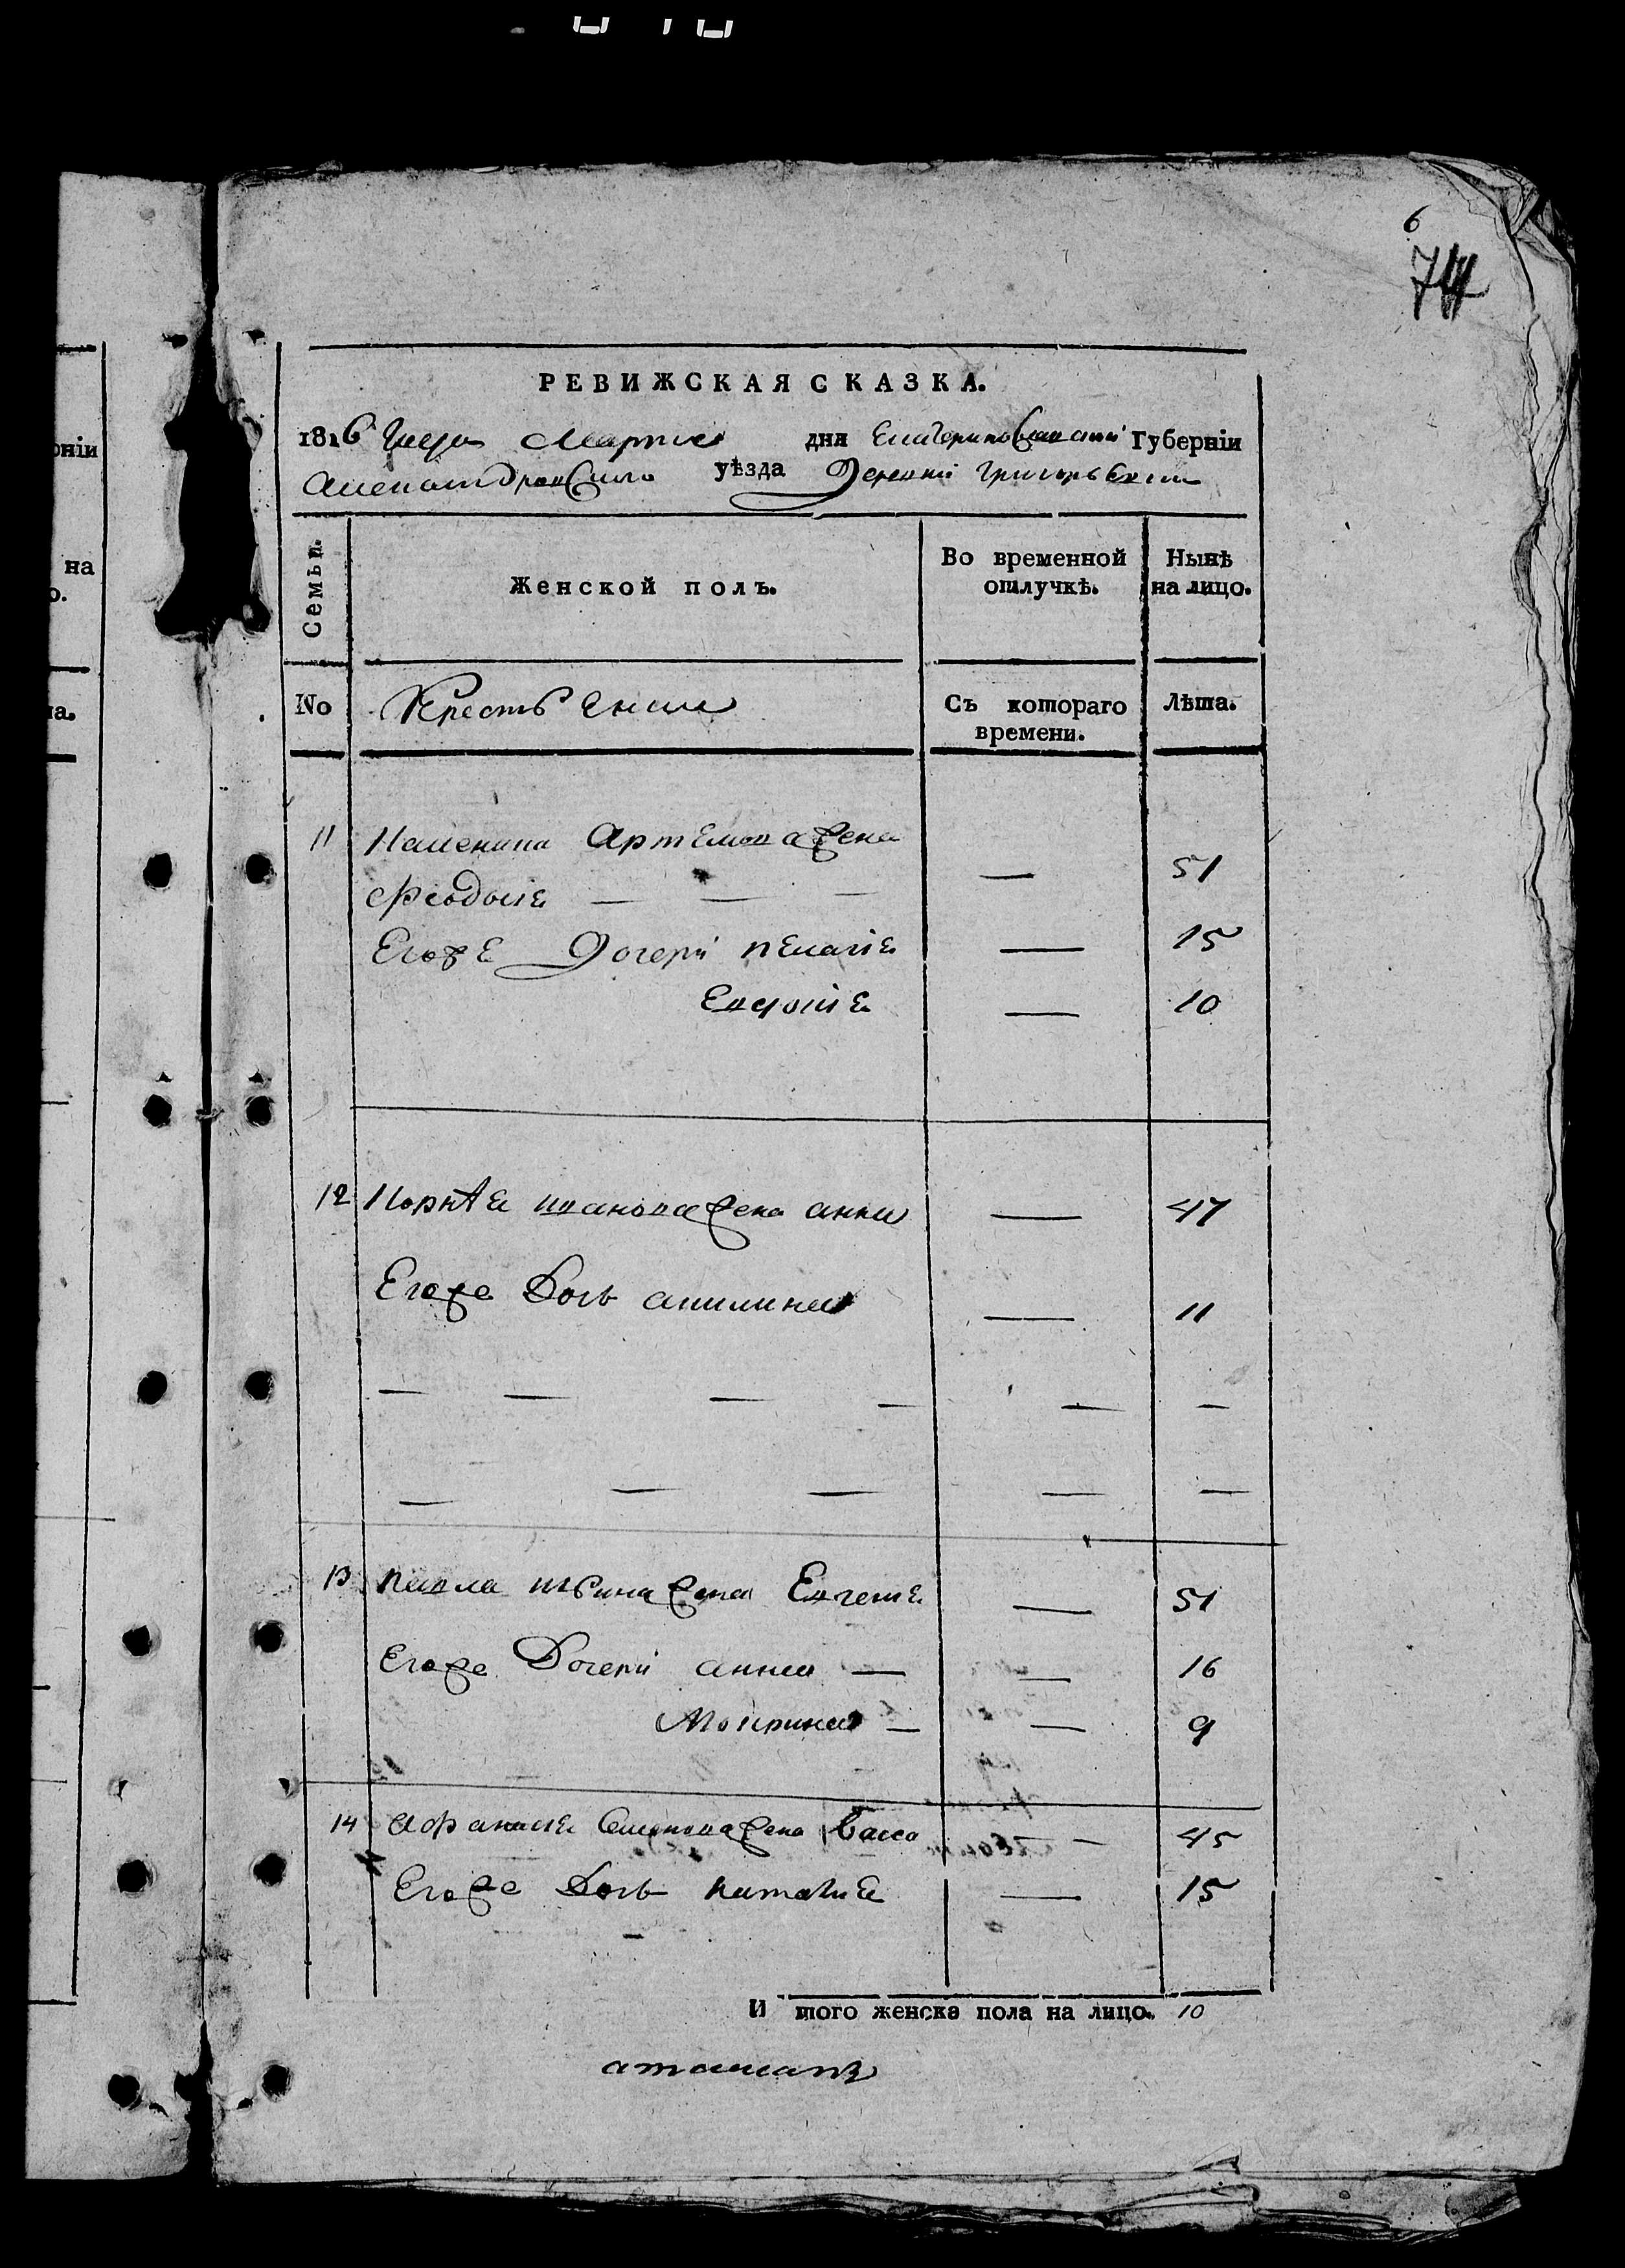 6
74
РЕВИЖСКАЯ СКАЗКА.
1816 Года Марта дня Екатеринославской Губерніи
Александровского уѣзда Деревни Григорьевки
Семьи.
Женской полъ.
Во временной
отлучкѣ.
Нынѣ
на лицо.
No
Крестьяне
Съ котораго
времени.
Лѣта.
11 Артемова жена
Феодосиа — — — — 51
Егоже Дочери Пелагиа — 15
Евдокиа — 10
12 Корнѣа Иванова жена анна — 47
Егоже Дочь акилина — 11
— — — — — —
— — — — —
13 Павла жена Евгениа — 51
Егоже Дочери анна — — 16
Мокрина — — 9
14 Афанасиа Семенова жена Васса — — 45
Егоже Дочь Наталиа — 15
И того женска пола на лицо. 10
атаманъ
ніи
на
о.
та.